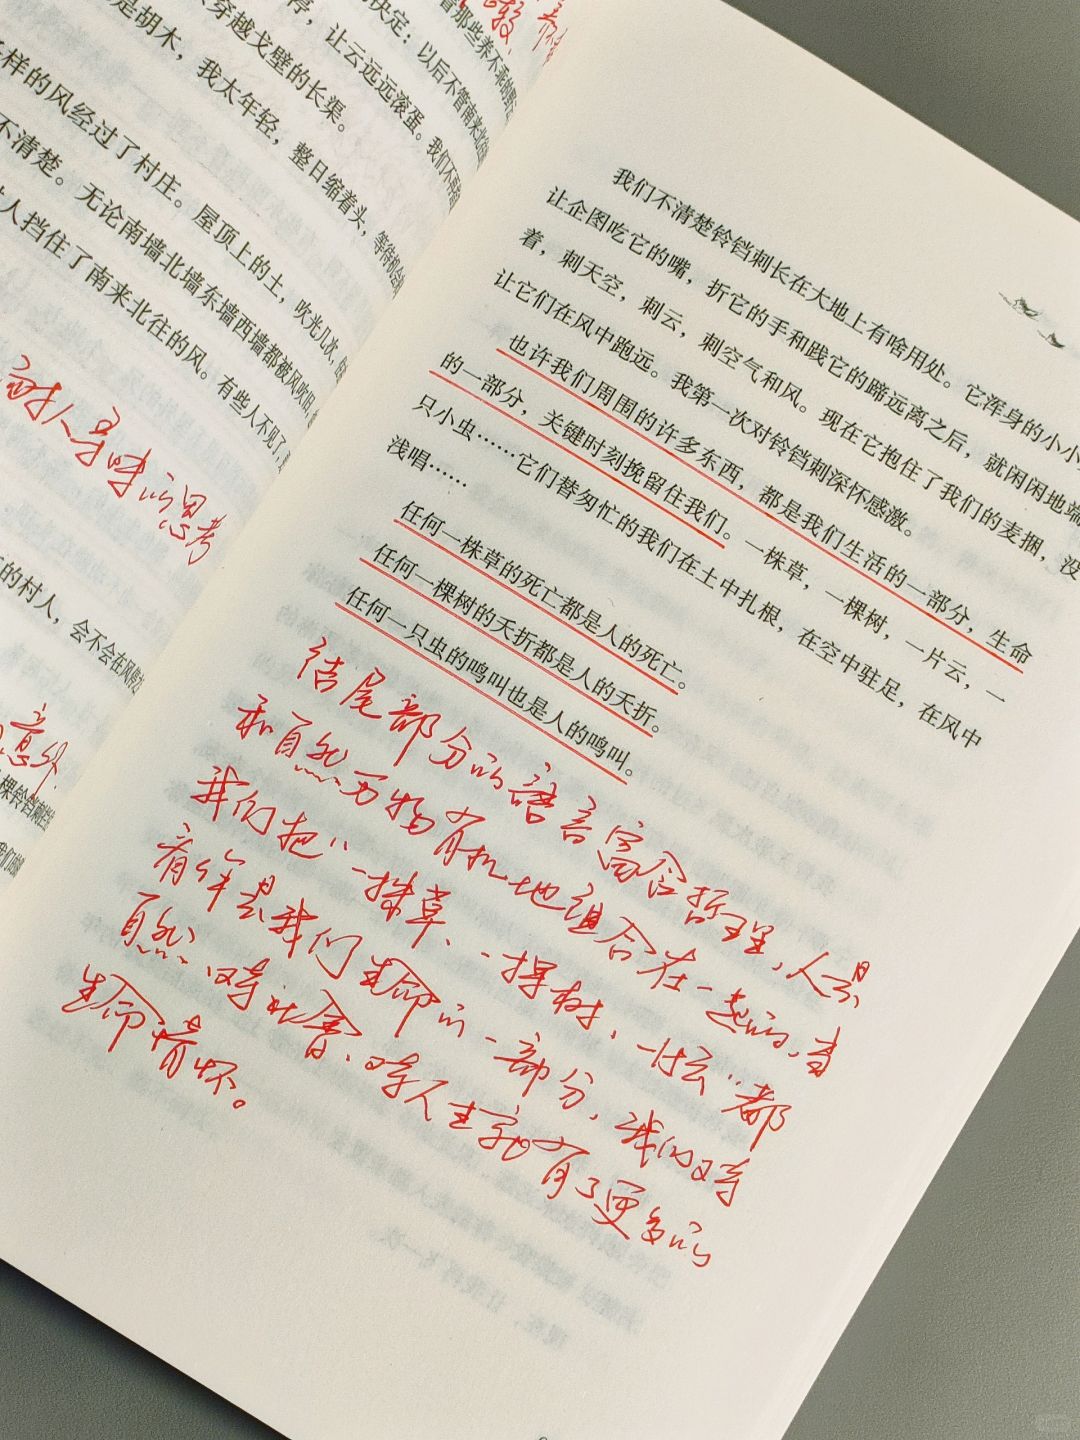 看那些养不乖的野
决定：以后不管南来北
停，让云远远滚蛋。我们不再
穿越戈壁的长渠。
是胡木，我太年轻，整日缩着头，等待机会
样的风经过了村庄。屋顶上的土，吹光几次，
不清楚。无论南墙北墙东墙西墙都被风吹旧，
人挡住了南来北往的风。有些人不见了，
耐人寻味的思考
的村人，会不会在风停
意外
棵铃铛刺挡
我们不清楚铃铛刺长在大地上有啥用处。它浑身的小小
让企图吃它的嘴，折它的手和践它的蹄远离之后，就闲闲地端
着，刺天空，刺云，刺空气和风。现在它抱住了我们的麦捆，没
让它们在风中跑远。我第一次对铃铛刺深怀感激。
也许我们周围的许多东西，都是我们生活的一部分，生命
的一部分，关键时刻挽留住我们。一株草，一棵树，一片云，一
只小虫……它们替匆忙的我们在土中扎根，在空中驻足，在风中
浅唱……
任何一株草的死亡都是人的死亡。
任何一棵树的夭折都是人的夭折。
任何一只虫的鸣叫也是人的鸣叫。
结尾部分的语言富含哲理，人是
和自然万物有机地组合在一起的，当
我们把“一株草、一棵树、一片云”都
看作是我们生命的一部分，我们对
自然、对社会、对人生就有了更多的
生命情怀。